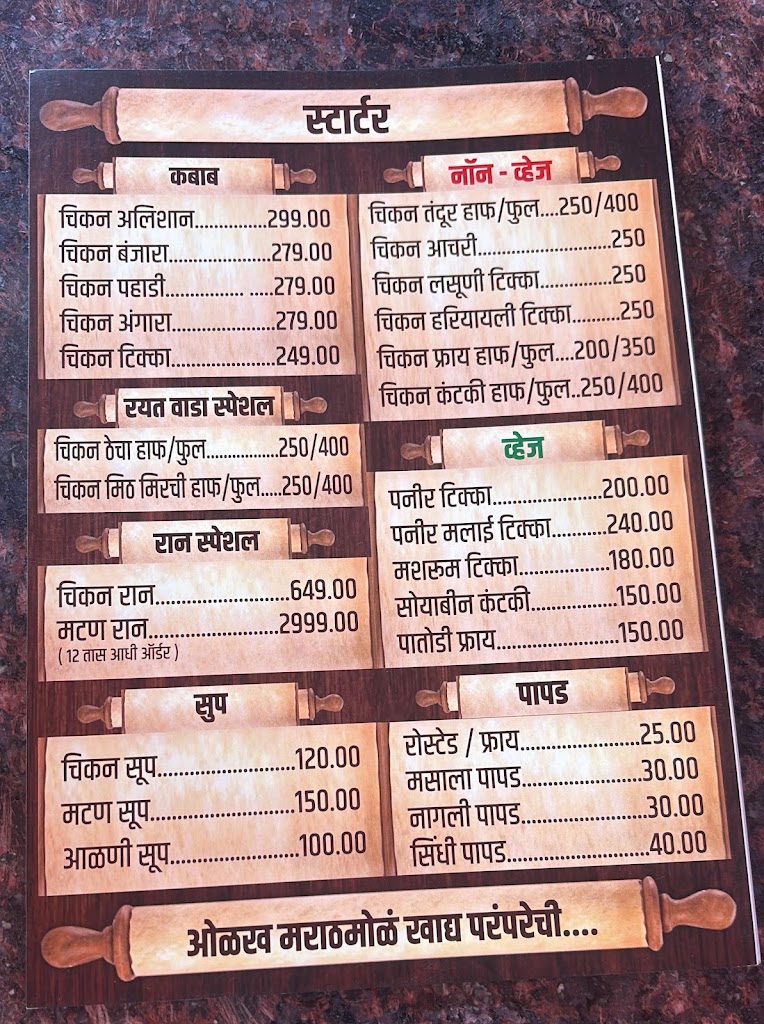 स्टार्टर
कबाब
चिकन अलिशान...............299.00
चिकन बंजारा.....................279.00
चिकन पहाडी................ .....279.00
चिकन अंगारा.....................279.00
चिकन टिक्का.....................249.00
रयत वाडा स्पेशल
चिकन ठेचा हाफ/फुल.................250/400
चिकन मिठ मिरची हाफ/फुल.....250/400
रान स्पेशल
चिकन रान...........................649.00
मटण रान..........................2999.00
( 12 तास आधी ऑर्डर )
सुप
चिकन सूप...........................120.00
मटण सूप............................150.00
आळणी सूप.........................100.00
नॉन - व्हेज
चिकन तंदूर हाफ/फुल....250/400
चिकन आचरी...........................250
चिकन लसूणी टिक्का..............250
चिकन हरियायली टिक्का.........250
चिकन फ्राय हाफ/फुल....200/350
चिकन कंटकी हाफ/फुल..250/400
व्हेज
पनीर टिक्का......................200.00
पनीर मलाई टिक्का...........240.00
मशरूम टिक्का..................180.00
सोयाबीन कंटकी.................150.00
पातोडी फ्राय........................150.00
पापड
रोस्टेड / फ्राय.......................25.00
मसाला पापड.......................30.00
नागली पापड........................30.00
सिंधी पापड...........................40.00
ओळख मराठमोळं खाद्य परंपरेची....